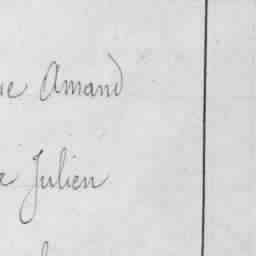 Amand
Julien